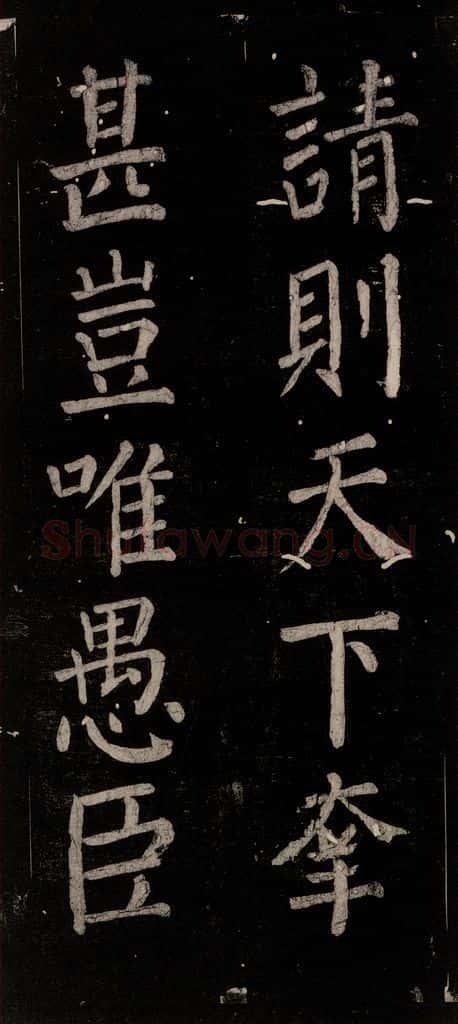 請則天下幸
甚豈唯愚臣
Shufawang.CN